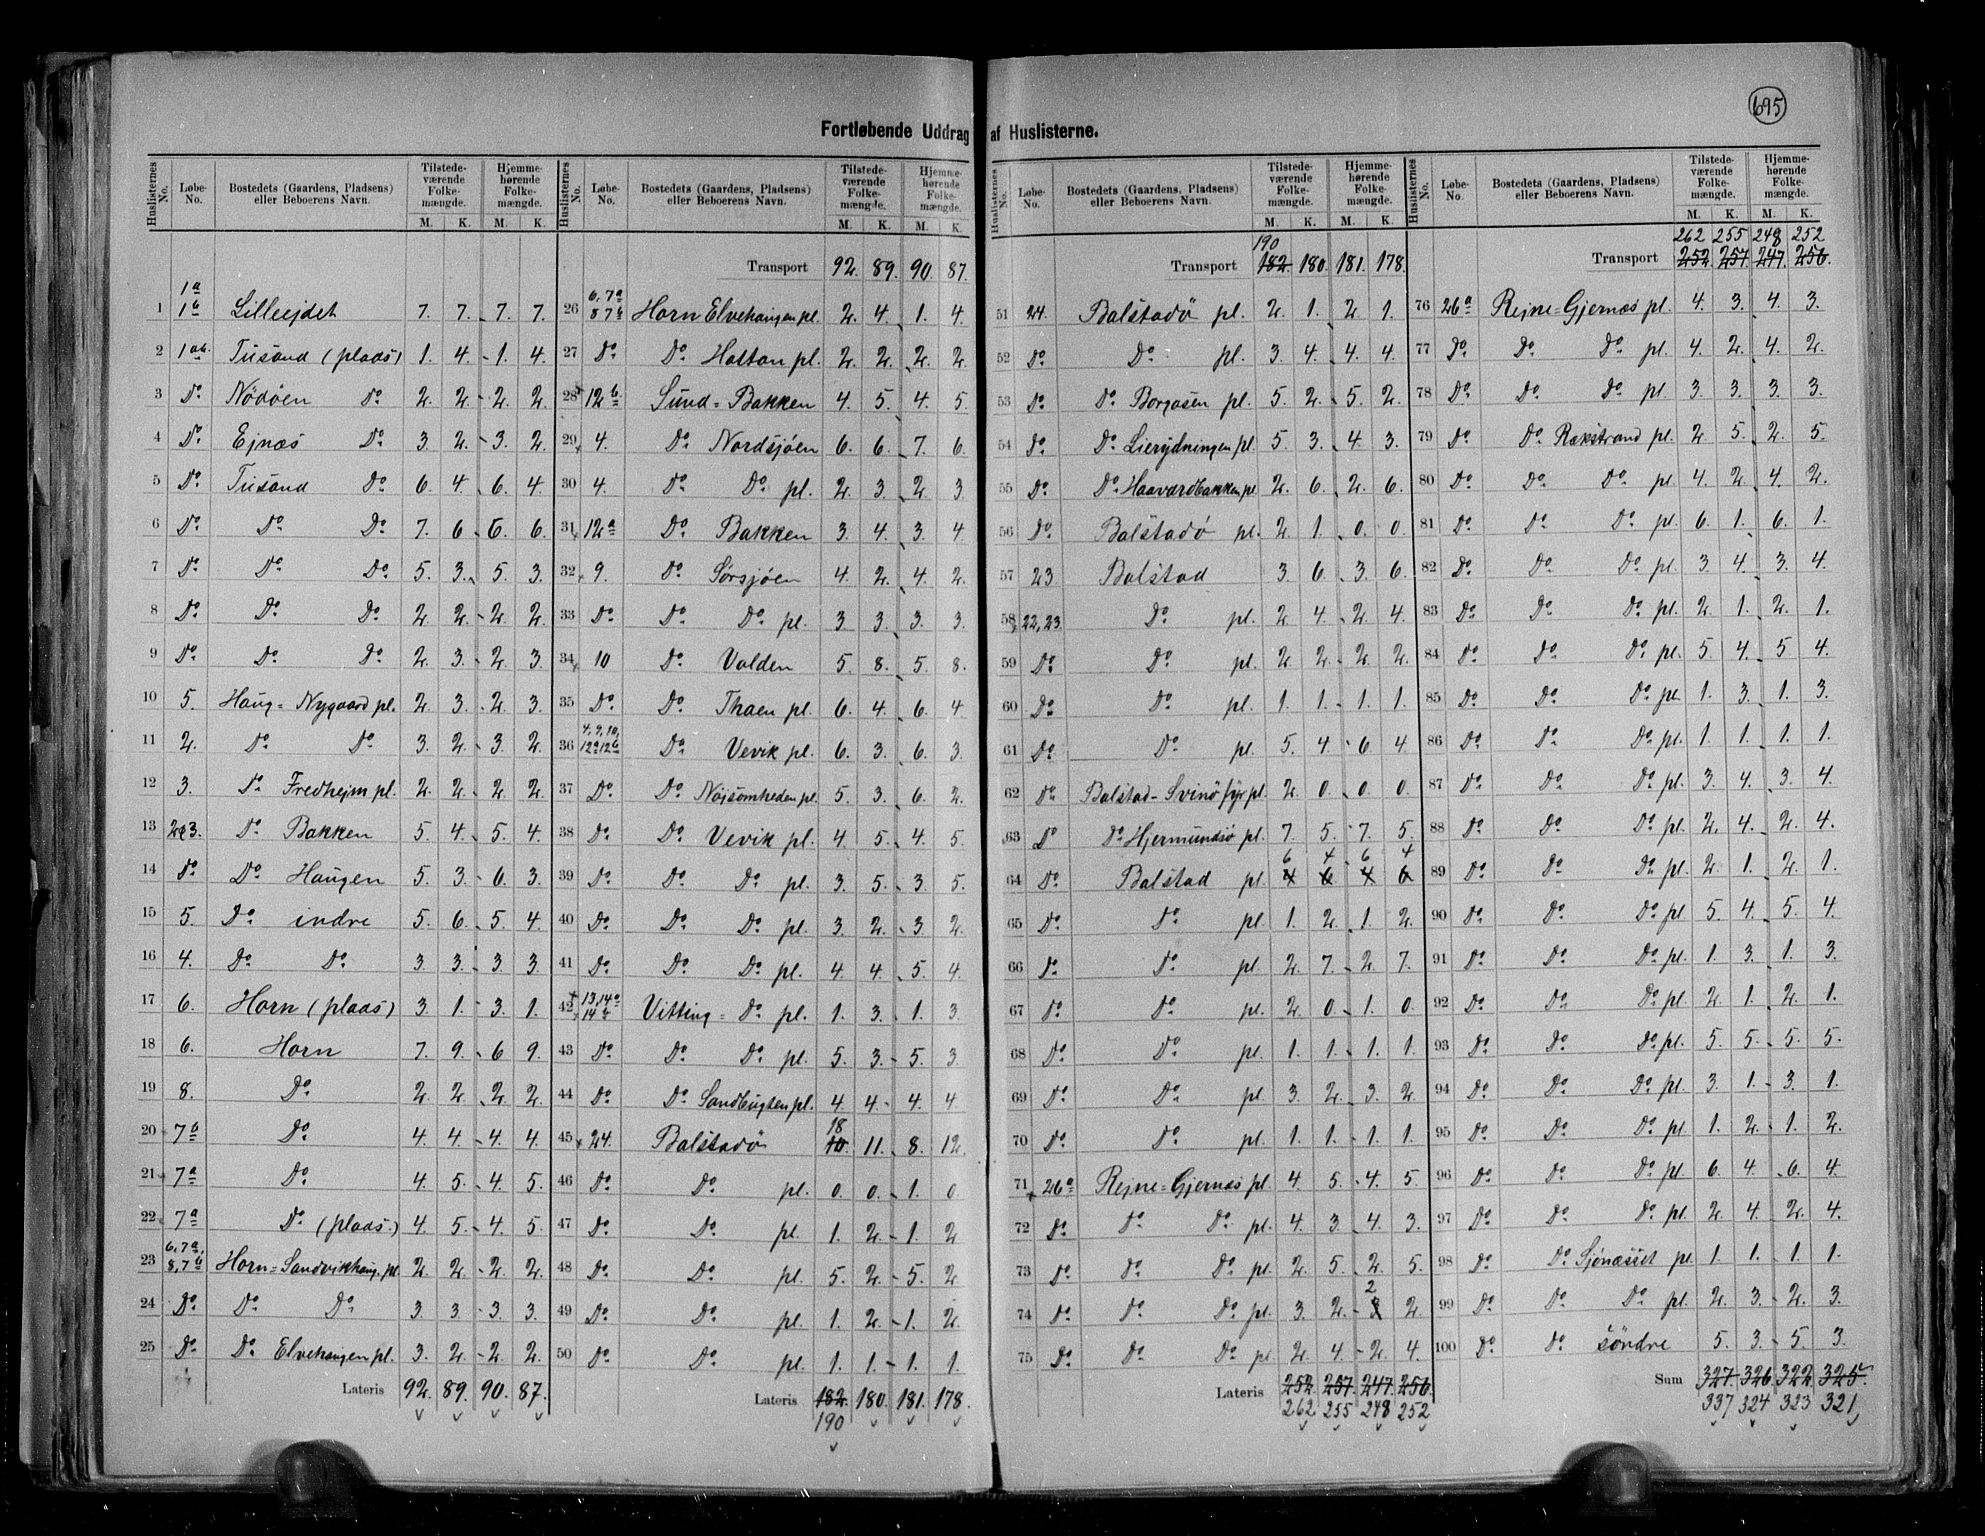 695
Fortløbende Uddrag af Huslisterne.
Huslisternes No. | Løbe-No. | Bostedets (Gaardens, Pladsens) eller Beboerens Navn. | Tilstedeværende Folkemængde. M. K. | Hjemmehørende Folkemængde. M. K.
1 | 1a 1b | Lilleejdet | 7. | 7. | 7. | 7.
2 | 1ab. | Tusand (plads) | 1. | 4. | 1. | 4.
3 | Do | Nödöen Do | 2. | 2. | 2. | 2.
4 | Do | Ejnæs Do | 3. | 2. | 3. | 2.
5 | Do | Tusand Do | 6. | 4. | 6. | 4.
6 | Do | Do Do | 7. | 6. | 6. | 6.
7 | Do | Do Do | 5. | 3. | 5. | 3.
8 | Do | Do Do | 2. | 2. | 2. | 2.
9 | Do | Do Do | 2. | 3. | 2. | 3.
10 | 5. | Haug = Nygaard pl. | 2. | 3. | 2. | 3.
11 | 2. | Do Do | 3. | 2. | 3. | 2.
12 | 3. | Do Fredhejm pl. | 2. | 2. | 2. | 2.
13 | 2&3. | Do Bakken | 5. | 4. | 5. | 4.
14 | Do | Do Haugen | 5. | 3. | 6. | 3.
15 | 5. | Do indre | 5. | 6. | 5. | 4.
16 | 4. | Do Do | 3. | 3. | 3. | 3.
17 | 6. | Horn (plads) | 3. | 1. | 3. | 1.
18 | 6. | Horn | 7. | 9. | 6 | 9.
19 | 8. | Do | 2. | 2. | 2. | 2.
20 | 7b | Do | 4. | 4. | 4. | 4.
21 | 7a | Do | 4. | 5. | 4. | 5.
22 | 7a | Do (plads.) | 4. | 5. | 4. | 5.
23 | 6, 7a, 8, 7b | Horn = Sandvikhaug. pl. | 2. | 2. | 2. | 2.
24 | Do | Do Do | 3. | 3 | 3. | 3.
25 | Do | Do Elvehaugen pl. | 3. | 2. | 2. | 2.
Lateris | 92. | 89. | 90. | 87.
Huslisternes No. | Løbe-No. | Bostedets (Gaardens, Pladsens) eller Beboerens Navn. | Tilstedeværende Folkemængde. M. K. | Hjemmehørende Folkemængde. M. K.
Transport | 92. | 89. | 90. | 87.
26 | 6, 7a 8 7b | Horn Elvehaugen pl. | 2. | 4. | 1. | 4
27 | Do | Do Hattan pl. | 2. | 2. | 2. | 2
28 | 12b | Sund = Bakken | 4. | 5. | 4. | 5
29 | 4. | Do Nordsjöen | 6. | 6. | 7. | 6
30 | 4. | Do Do pl. | 2. | 3. | 2. | 3
31 | 12a | Do Bakken | 3. | 4. | 3. | 4
32 | 9. | Do Sörsjöen | 4. | 2. | 4. | 2.
33 | Do | Do Do pl. | 3 | 3. | 3. | 3.
34 | 10 | Do Volden | 5. | 8. | 5. | 8.
35 | Do | Do Thaen pl. | 6. | 4. | 6. | 4
36 | 4, 9, 10, 12a 12b | Do Vevik pl. | 6. | 3. | 6. | 3
37 | Do | Do Nöjsomheden pl. | 5. | 3. | 6. | 2.
38 | Do | Do Vevik pl. | 4. | 5. | 4. | 5
39 | Do | Do Do pl. | 3. | 5. | 3. | 5.
40 | Do | Do Do pl. | 3. | 2. | 3. | 2.
41 | Do | Do Do pl. | 4. | 4. | 5. | 4
42 | 13, 14a 14b | Vitting = Do pl. | 1. | 3. | 1. | 3
43 | Do | Do Do pl. | 5. | 3. | 5. | 3
44 | Do | Do Sandbugten pl. | 4. | 4. | 4. | 4
45 | 24. | Balstadö | 18 10. | 11. | 8. | 12.
46 | Do | Do pl. | 0. | 0. | 1. | 0
47 | Do | Do pl. | 1. | 2. | 1. | 2
48 | Do | Do pl. | 5. | 2. | 5. | 2
49 | Do | Do pl. | 1. | 2. | 1. | 2.
50 | Do | Do pl. | 1. | 1. | 1. | 1
Lateris | 182. 190 | 180. | 181. | 178.
Huslisternes No. | Løbe-No. | Bostedets (Gaardens, Pladsens) eller Beboerens Navn. | Tilstedeværende Folkemængde. M. K. | Hjemmehørende Folkemængde. M. K.
Transport | 190 182. | 180. | 181. | 178.
51 | 24. | Balstadö pl. | 2. | 1. | 2. | 1.
52 | Do | Do pl. | 3. | 4. | 4. | 4.
53 | Do | Do Borgosen pl. | 5. | 2. | 5. | 2.
54 | Do | Do Lierydningen pl. | 5. | 3. | 4 | 3.
55 | Do | Do Haavardbakken pl | 2. | 6. | 2. | 6.
56 | Do | Balstadö pl. | 2. | 1. | 0. | 0.
57 | 23 | Balstad | 3. | 6. | 3. | 6.
58 | 22, 23. | Do pl. | 2. | 4. | 2. | 4.
59 | Do | Do pl. | 2. | 2. | 2. | 2.
60 | Do | Do pl. | 1. | 1. | 1. | 1.
61 | Do | Do pl. | 5. | 4 | 6 | 4
62 | Do | Balstad - Svinö fyr pl. | 2. | 0. | 0. | 0.
63 | Do | Do Hjermundsö pl. | 7. | 5. | 7. | 5.
64 | Do | Balstad pl. | 6 4 | 4 6. | 6 4 | 4 6
65 | Do | Do pl. | 1. | 2. | 1. | 2.
66 | Do | Do pl. | 2. | 7. | 2. | 7.
67 | Do | Do pl. | 2. | 0. | 1. | 0.
68 | Do | Do pl. | 1. | 1. | 1. | 1.
69 | Do | Do pl. | 3. | 2. | 3. | 2.
70 | Do | Do pl. | 1. | 1. | 1. | 1.
71 | 26a | Rejne = Gjernæs pl. | 4. | 5. | 4. | 5.
72 | Do | Do Do pl. | 4. | 3. | 4. | 3.
73 | Do | Do Do pl. | 2. | 5. | 2. | 5.
74 | Do | Do Do pl. | 3. | 2. | 2 3 | 2.
75 | Do | Do Do pl | 2. | 4. | 2. | 4.
Lateris | 252. 262 | 257. 255 | 247. 248 | 256. 252
Huslisternes No. | Løbe-No. | Bostedets (Gaardens, Pladsens) eller Beboerens Navn. | Tilstedeværende Folkemængde. M. K. | Hjemmehørende Folkemængde. M. K.
Transport | 262 252. | 255 257. | 248 247. | 252 256.
76 | 26a | Rejne = Gjernæs pl. | 4. | 3. | 4. | 3.
77 | Do | Do Do pl. | 4. | 2. | 4. | 2.
78 | Do | Do Do pl. | 3. | 3. | 3. | 3.
79 | Do | Do Rækstrand pl. | 2. | 5. | 2. | 5.
80 | Do | Do Do pl. | 4. | 2. | 4. | 2.
81 | Do | Do Do pl. | 6. | 1. | 6. | 1.
82 | Do | Do Do pl. | 3. | 4. | 3. | 4.
83 | Do | Do Do pl. | 2. | 1. | 2. | 1.
84 | Do | Do Do pl. | 5. | 4. | 5 | 4.
85 | Do | Do Do pl | 1. | 3. | 1. | 3.
86 | Do | Do Do pl. | 1. | 1. | 1. | 1.
87 | Do | Do Do pl. | 3. | 4. | 3. | 4.
88 | Do | Do Do pl. | 2. | 4. | 2. | 4.
89 | Do | Do Do pl. | 2. | 1. | 2. | 1.
90 | Do | Do Do pl | 5. | 4. | 5. | 4.
91 | Do | Do Do pl. | 1. | 3. | 1. | 3.
92 | Do | Do Do pl. | 2. | 1. | 2. | 1.
93 | Do | Do Do pl. | 5. | 5. | 5. | 5.
94 | Do | Do Do pl. | 3. | 1. | 3. | 1.
95 | Do | Do Do pl. | 1. | 2. | 1. | 2.
96 | Do | Do Do pl. | 6. | 4. | 6. | 4.
97 | Do | Do Do pl. | 2. | 4. | 2. | 4.
98 | Do | Do Sjönæsset pl. | 1. | 1. | 1. | 1.
99 | Do | Do Do pl. | 2. | 3. | 2. | 3.
100 | Do | Do söndre | 5. | 3. | 5. | 3.
Sum | 327. 337 | 326. 324 | 322. 323 | 325. 321,